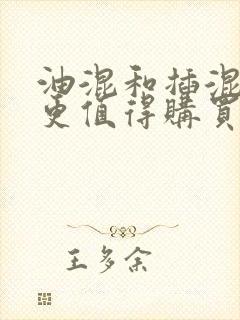 油混和插混
更值得購買
王多余